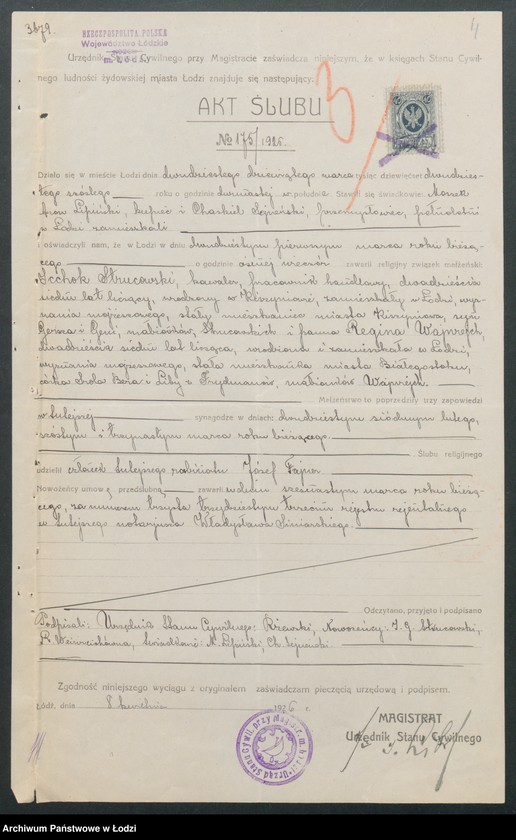 3879.
4
RZECZPOSPOLITA POLSKA
Województwo Łódzkie
m. Łódź
Urzędnik Stanu Cywilnego przy Magistracie zaświadcza niniejszym, że w księgach Stanu Cywil-
nego ludności żydowskiej miasta Łodzi znajduje się następujący:
3
AKT ŚLUBU
№ 175/1926.
Działo się w mieście Łodzi dnia dwudziestego dziewiątego marca tysiąc dziewięćset dwudzies-
tego szóstego roku o godzinie dwunastej w południe. Stawili się świadkowie: Moszek
Aron Lipiński, kupiec i Chaskiel przemysłowiec, pełnoletni
w Łodzi zamieszkali
i oświadczyli nam, że w Łodzi w dniu dwudziestym pierwszym marca roku bieżą-
cego o godzinie ósmej wieczór zawarli religijny związek małżeński:
Icchok Strucowski, kawaler, pracownik handlowy, dwadzieścia
siedm lat liczący, urodzony w Kiszyniowie, zamieszkały w Łodzi, wyz-
nania mojżeszowego, stały mieszkaniec miasta Kiszyniowa, syn
i małżonków Strucowskich i panna Regina Wajnrejch,
dwadzieścia siedm lat licząca, urodzona i zamieszkała w Łodzi,
wyznania mojżeszowego, stała mieszkanka miasta Białegostoku,
córka Srola Bera i Liby z Frydmanów, małżonków Wajnrejch.
Małżeństwo to poprzedziły trzy zapowiedzi
w tutejszej synagodze w dniach: dwudziestym siódmym lutego,
szóstym i trzynastym marca roku bieżącego.
Ślubu religijnego
udzielił członek tutejszego rabinatu Józef Fajner
Nowożeńcy umowę przedślubną zawarli w dniu szesnastym marca roku bieżą-
cego, za numerem trzysta trzydziestym trzecim rejestru rejentalnego
u tutejszego notarjusza Władysława
Odczytano, przyjęto i podpisano
Podpisali: Urzędnik Stanu Cywilnego: Rżewski, Nowożeńcy: I. G. Strucowski,
R. Wajnrejchówna, Świadkowie: M. Lipiński, Ch.
Zgodność niniejszego wyciągu z oryginałem zaświadczam pieczęcią urzędową i podpisem.
Łódź, dnia 8 kwietnia 1926 r.
MAGISTRAT
Urzędnik Stanu Cywilnego
Urząd Stanu Cywil. przy Magist. m. Łodzi
Archiwum Państwowe w Łodzi